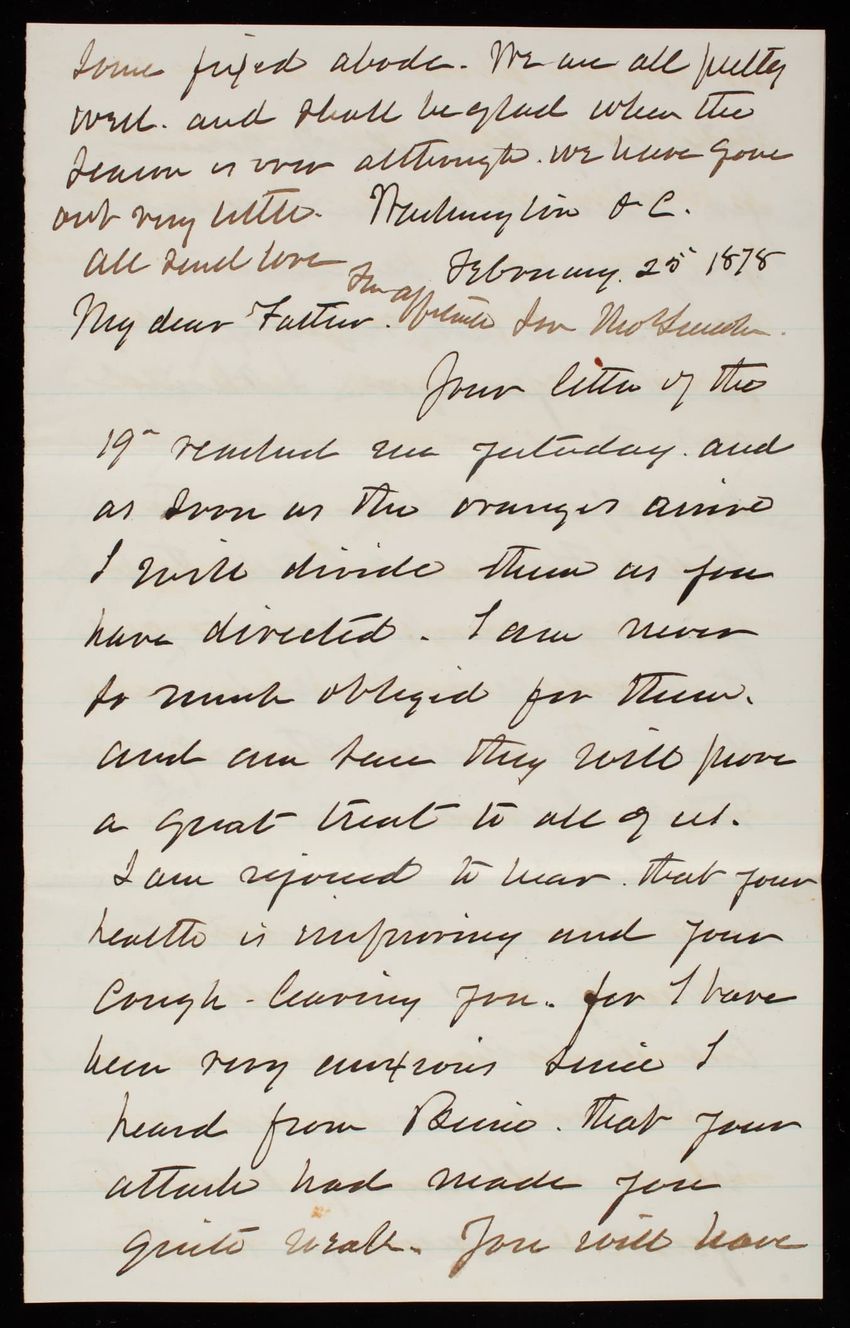 some fixed abode. We are all pretty
well. and shall be glad when the
season is over although. we have gone
out very little. Washington D. C.
all send love February. 25 1878
My dear Father. Your affectionate Son Thos Lincoln
Your letter of the
19" reached me yesterday. and
as soon as the oranges arrive
I will divide them as you
have directed. I am never
so much obliged for them.
and am sure they will prove
a great treat to all of us.
I am rejoiced to hear. that your
health is improving and your
Cough - leaving you. for I have
been very anxious since I
heard from that your
attack had made you
quite weak. You will have